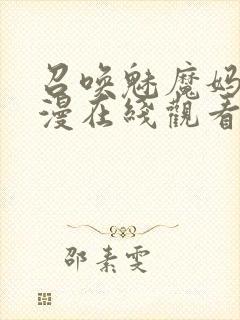 召喚魅魔妈
漫在綫觀看
邵素雯